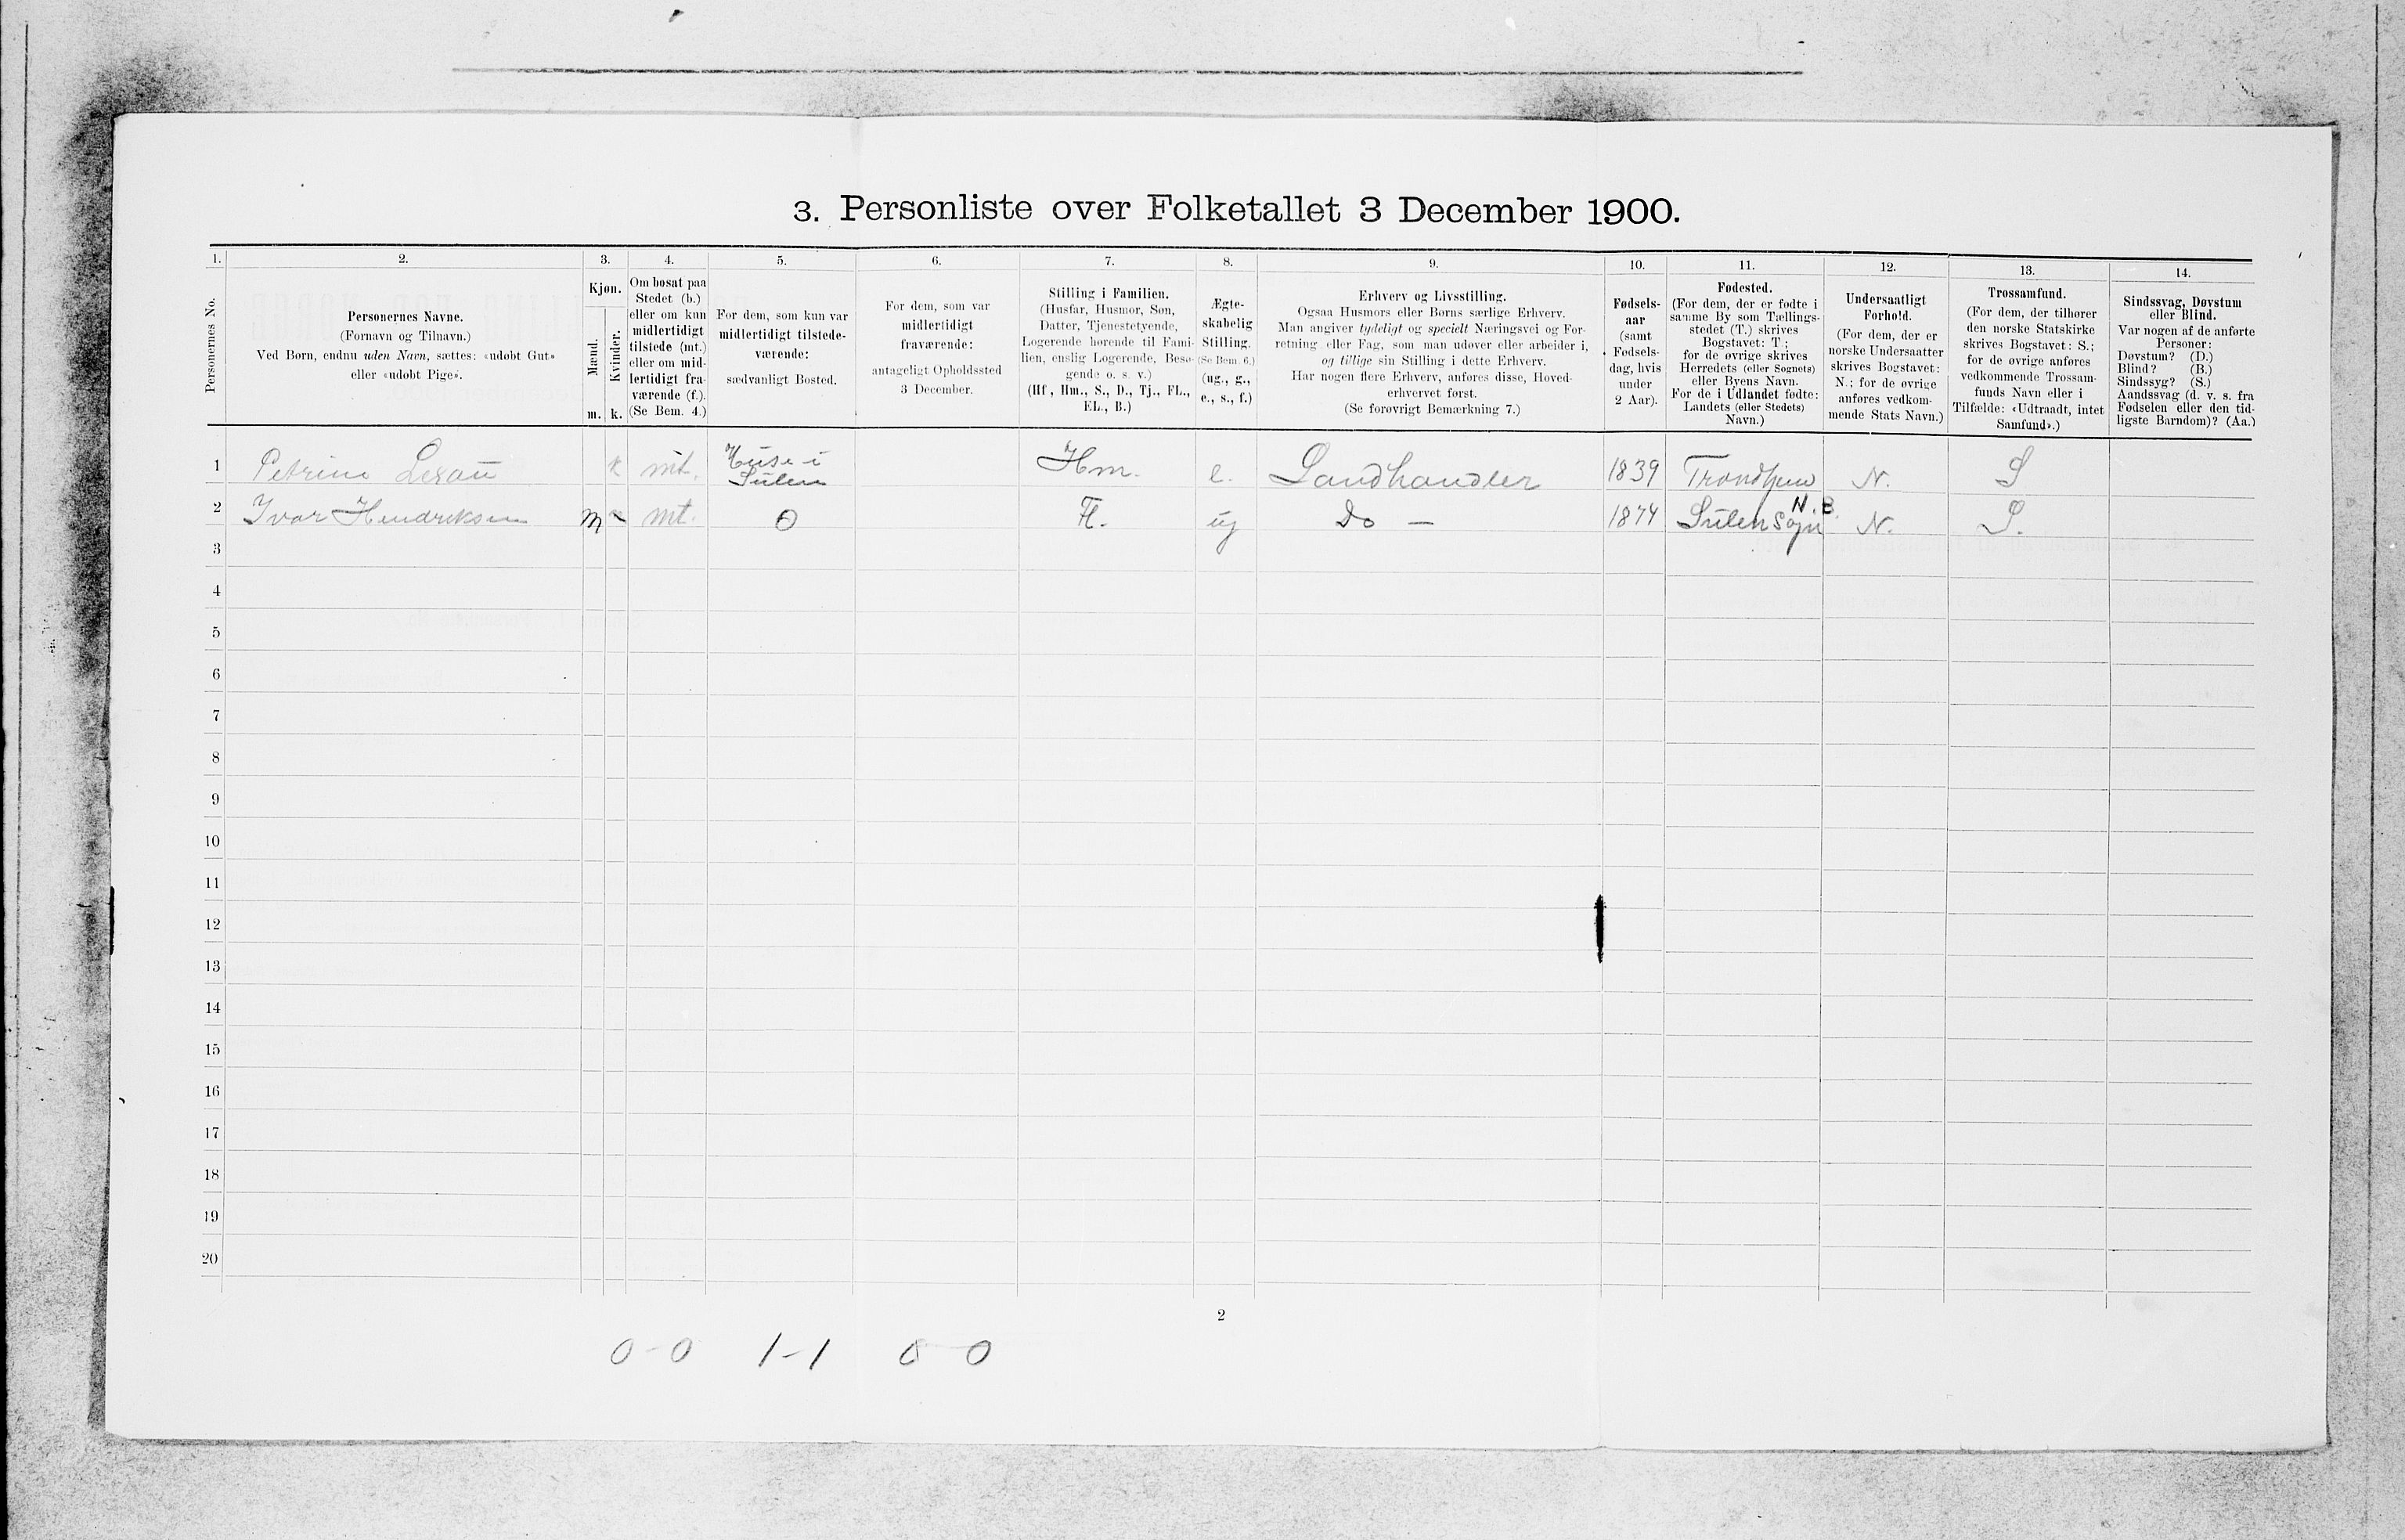 3. Personliste over Folketallet 3 December 1900.
1. 2. 3. 4. 5. 6. 7. 8. 9. 10. 11. 12. 13. 14.
Personernes No.
Personernes Navne.
(Fornavn og Tilnavn.)
Ved Børn, endnu uden Navn, sættes: «udøbt Gut»
eller «udøbt Pige».
Kjøn.
Mænd.
Kvinder.
m. k.
Om bosat paa
Stedet (b.)
eller om kun
midlertidigt
tilstede (mt.)
eller om mid-
lertidigt fra-
værende (f.).
(Se Bem. 4.)
For dem, som kun var
midlertidigt tilstede-
værende:
sædvanligt Bosted.
For dem, som var
midlertidigt
fraværende:
antageligt Opholdssted
3 December.
Stilling i Familien.
(Husfar, Husmor, Søn,
Datter, Tjenestetyende,
Logerende hørende til Fami-
lien, enslig Logerende, Besø-
gende o. s. v.)
(Hf., Hm., S., D., Tj., FL.,
EL., B.)
Ægte-
skabelig
Stilling.
(Se Bem. 6.)
(ug., g.,
e., s., f.)
Erhverv og Livsstilling.
Ogsaa Husmors eller Børns særlige Erhverv.
Man angiver tydeligt og specielt Næringsvei og For-
retning eller Fag, som man udøver eller arbeider i,
og tillige sin Stilling i dette Erhverv.
Har nogen flere Erhverv, anføres disse, Hoved-
erhvervet først.
(Se forøvrigt Bemærkning 7.)
Fødsels-
aar
(samt
Fødsels-
dag, hvis
under
2 Aar).
Fødested.
(For dem, der er fødte i
samme By som Tællings-
stedet (T.) skrives
Bogstavet: T;
for de øvrige skrives
Herredets (eller Sognets)
eller Byens Navn.
For de i Udlandet fødte:
Landets (eller Stedets)
Navn.)
Undersaatligt
Forhold.
(For dem, der er
norske Undersaatter
skrives Bogstavet:
N.; for de øvrige
anføres vedkom-
mende Stats Navn.)
Trossamfund.
(For dem, der tilhører
den norske Statskirke
skrives Bogstavet: S.;
for de øvrige anføres
vedkommende Trossam-
funds Navn eller i
Tilfælde: «Udtraadt, intet
Samfund».)
Sindssvag, Døvstum
eller Blind.
Var nogen af de anførte
Personer:
Døvstum? (D.)
Blind? (B.)
Sindssyg? (S.)
Aandssvag (d. v. s. fra
Fødselen eller den tid-
ligste Barndom)? (Aa.)
1 Petrine k mt. Huse i Sulen Hm. e. Landhandler 1839 Trondhjem N. S
2 Ivar Hendriksen m mt. O Fl. ug Do — 1874 Sulen sogn N. B. N. S.
3
4
5
6
7
8
9
10
11
12
13
14
15
16
17
18
19
20
2
0-0 1-1 0 0